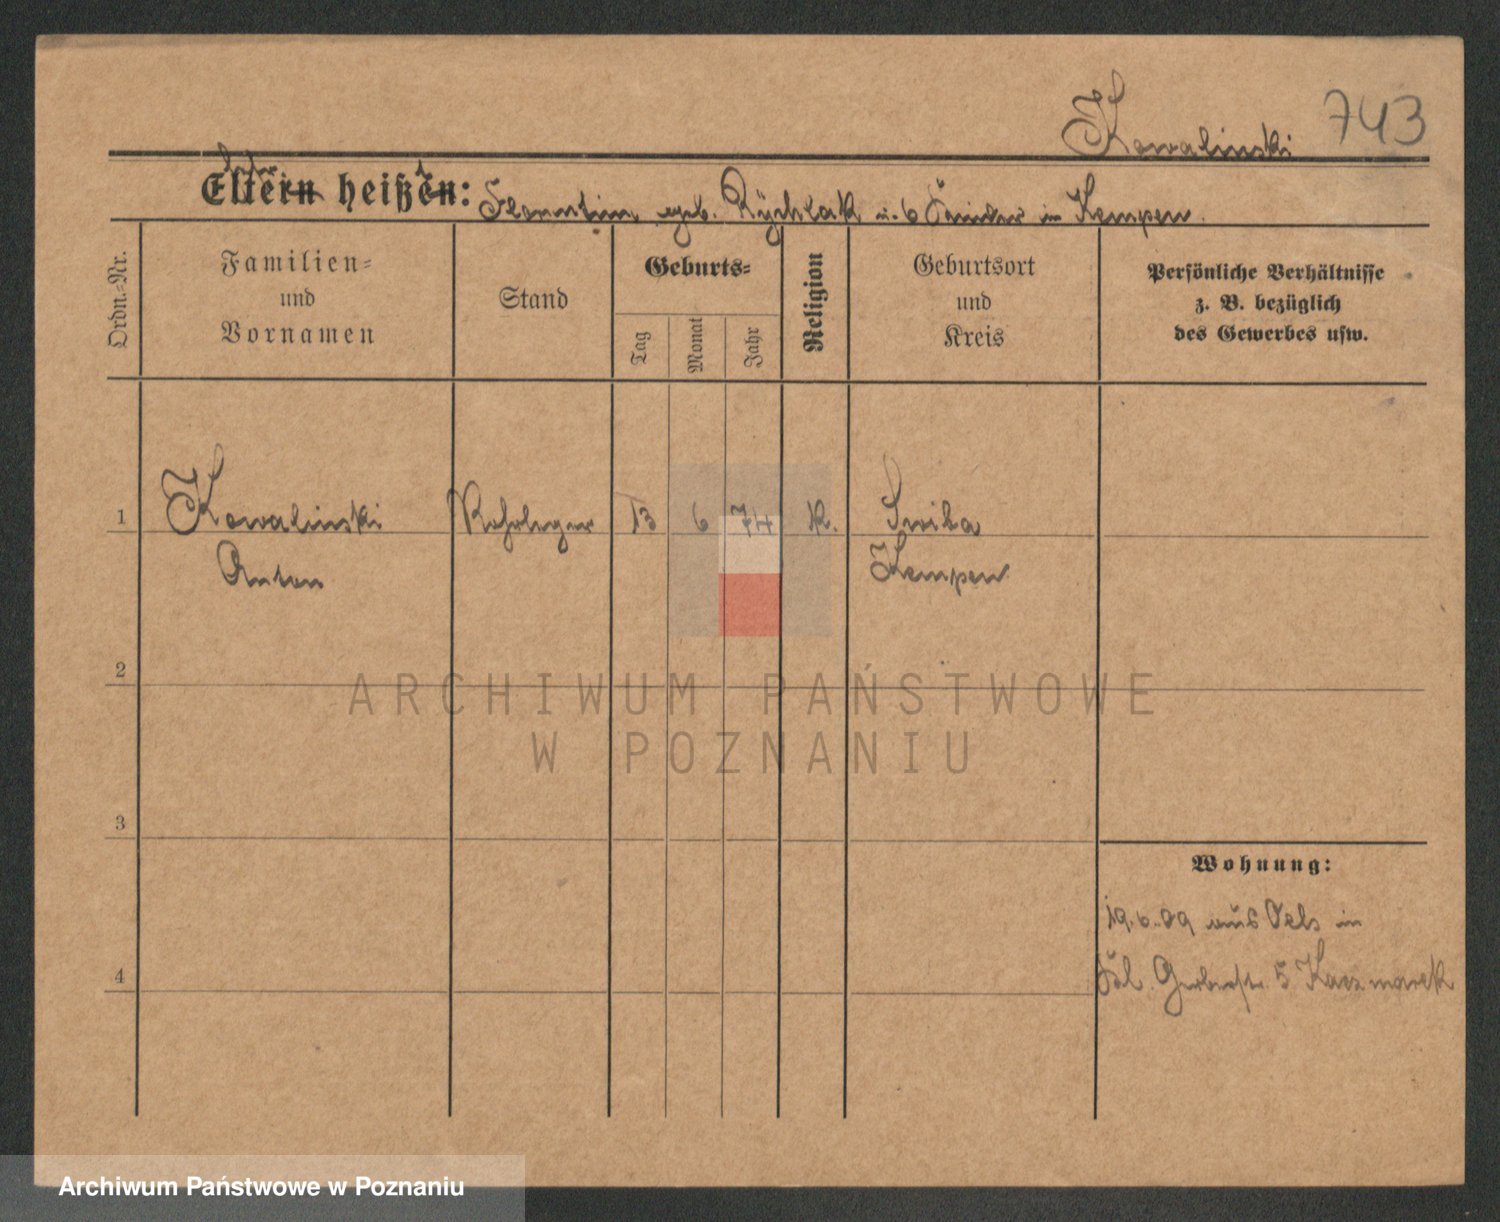 Kowalinski 743
Eltern heißen: geb. Rÿchlak u. 6 Kinder in Kempen.
Ordn.-Nr.
Familien-
und
Vornamen
Stand
Geburts-
Tag
Monat
Jahr
Religion
Geburtsort
und
Kreis
Persönliche Verhältnisse
z. B. bezüglich
des Gewerbes usw.
1 Kowalinski Rohrleger 13 6 74 k. Swiba
Anton Kempen
2
ARCHIWUM PAŃSTWOWE
W POZNANIU
3
Wohnung:
19.6.09 aus Oels in
Gerberstr. 5 Kaczmarek
4
Archiwum Państwowe w Poznaniu